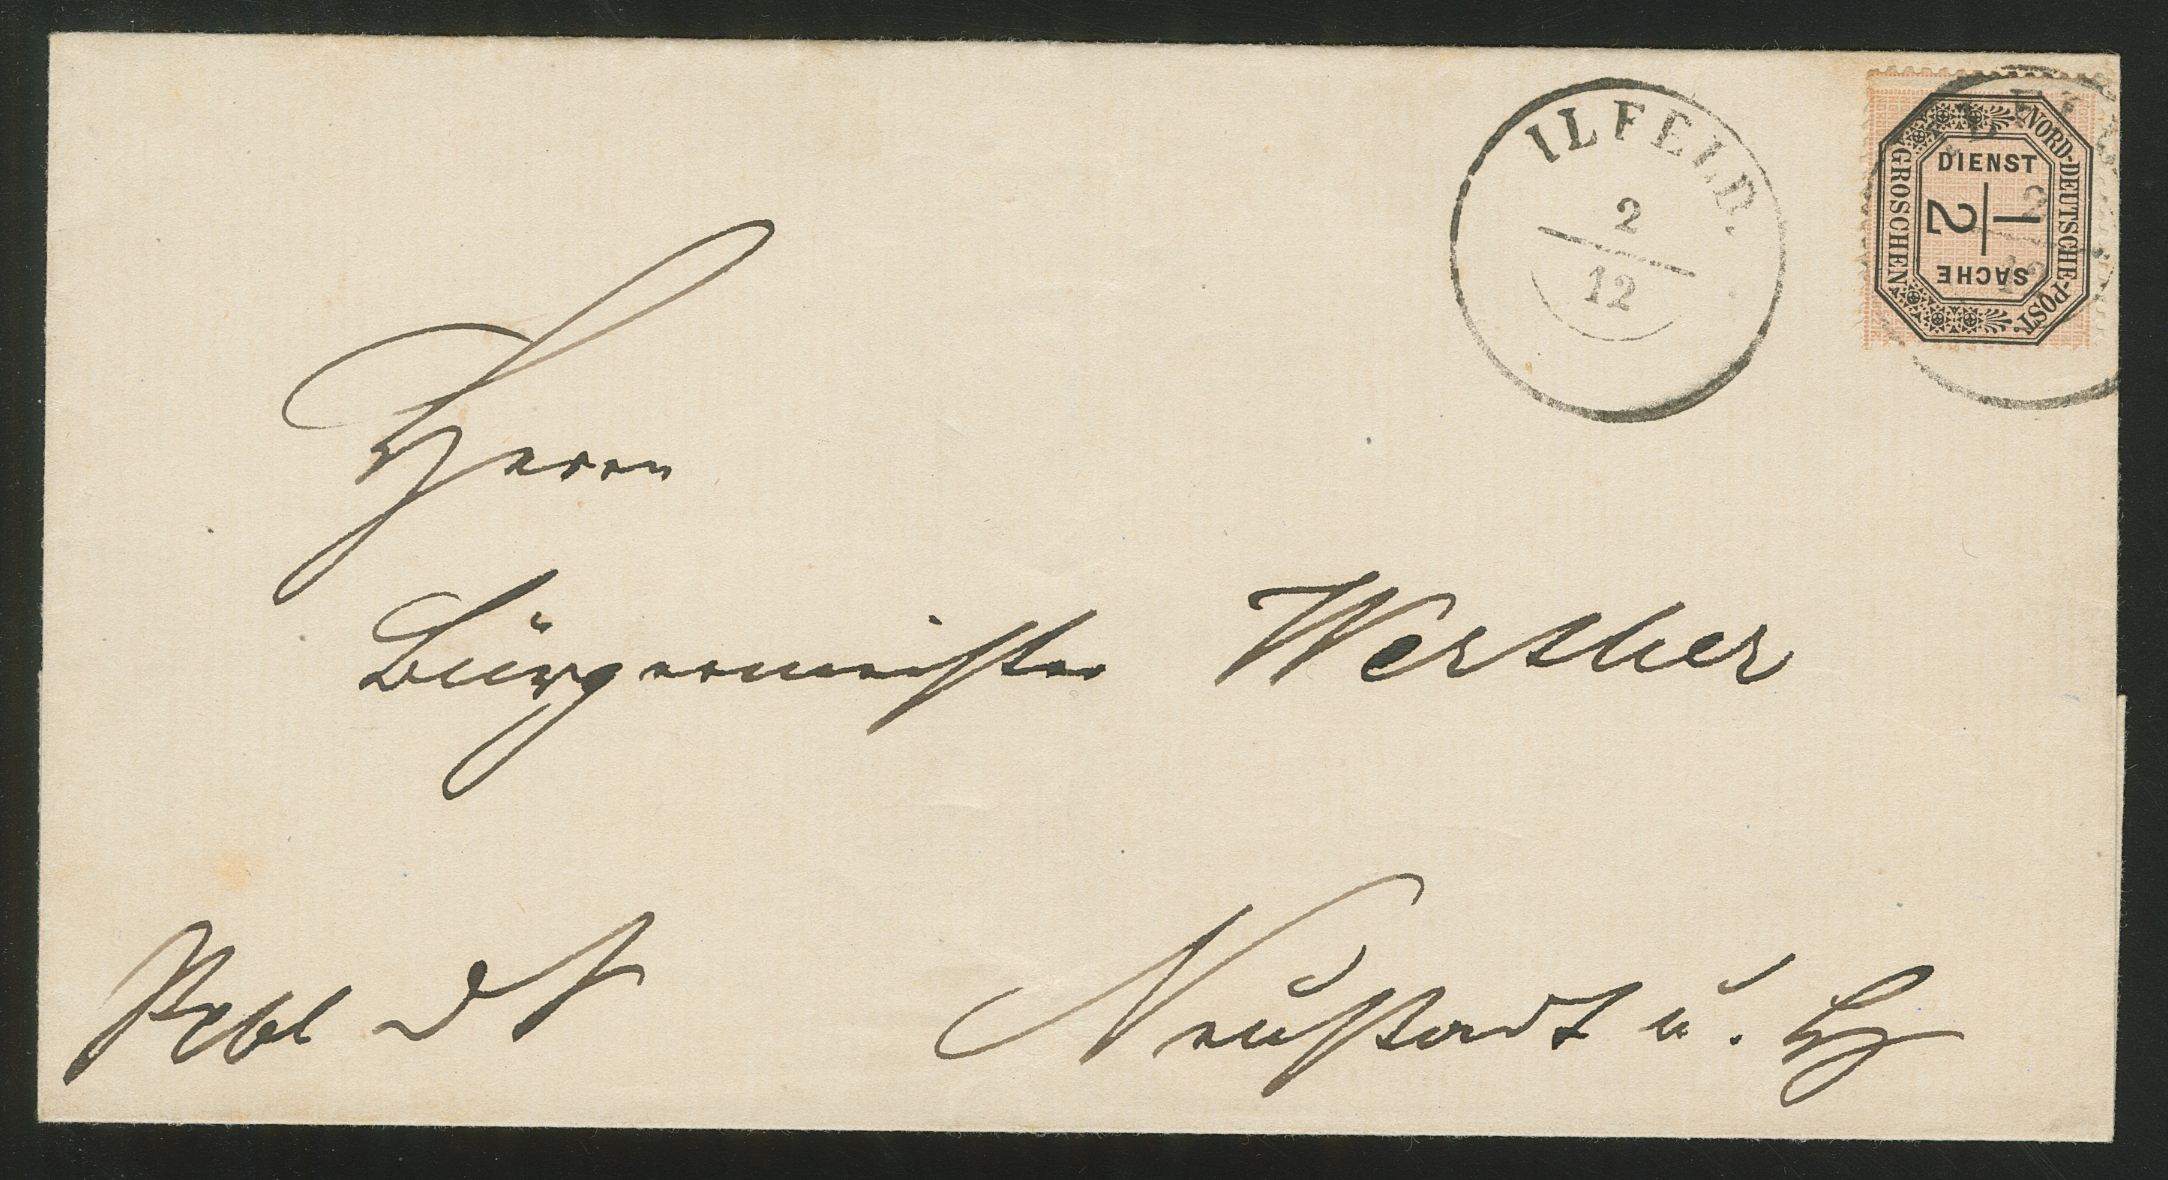 ILFELD.
2
12
NORD-DEUTSCHE-POST.
DIENST
1/2
SACHE
GROSCHEN
2
12
Herrn
Bürgermeister Werther
Neustadt u. H